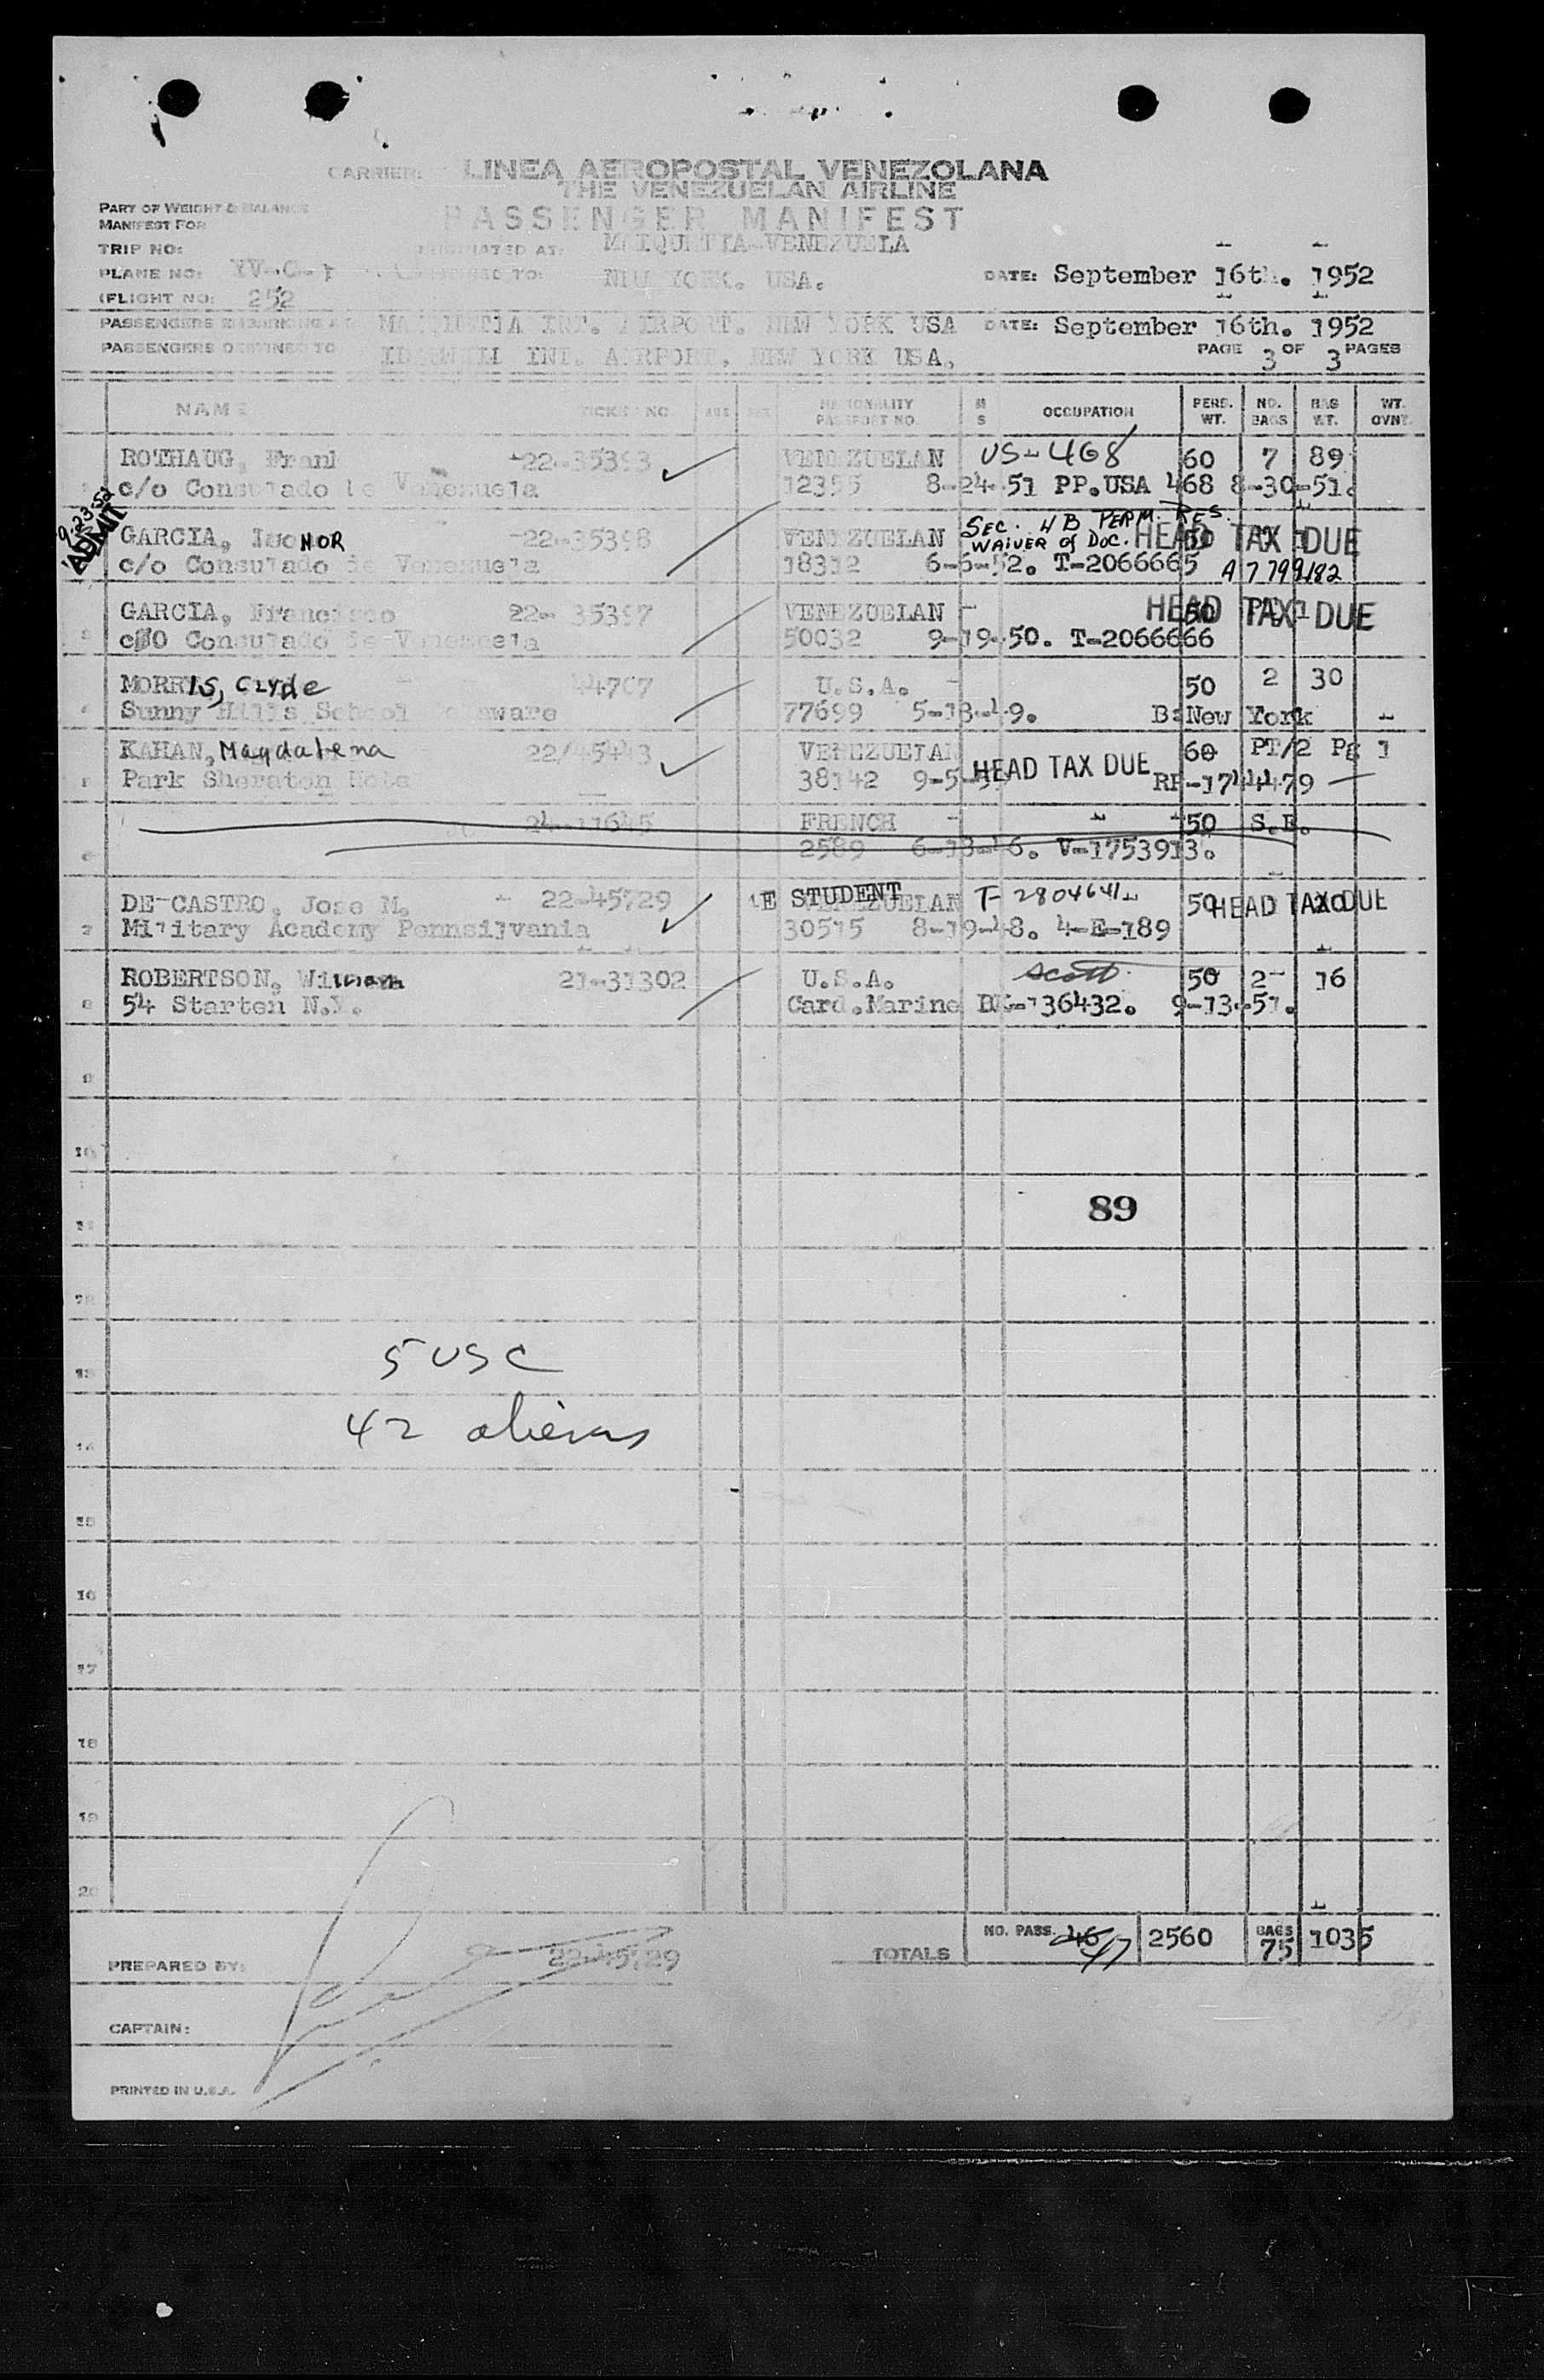 CARRIER: LINEA AEROPOSTAL VENEZOLANA
THE VENEZUELAN AIRLINE
PART OF WEIGHT & BALANCE
MANIFEST FOR
PASSENGER MANIFEST
TRIP NO: ORIGINATED AT: MAIQUETIA-VENEZUELA
PLANE NO: YV-C- TO: NEW YORK. USA. DATE: September 16th. 1952
(FLIGHT NO: 252
PASSENGERS EMBARKING AT MAIQUETIA INT. AIRPORT. NEW YORK USA DATE: September 16th. 1952
PASSENGERS DESTINED TO IDLEWILL INT. AIRPORT, NEW YORK USA, PAGE 3 OF 3 PAGES
NAME TICKET NO. AGE SEX NATIONALITY PASSPORT NO. M S OCCUPATION PERS. WT. NO. BAGS BAG WT. WT. OVNT.
ROTHAUG, Frank 22-35393 VENEZUELAN US-468 60 7 89
c/o Consulado de Venezuela 12355 8-24-51 PP.USA 468 8-30-51.
9-23-52 ADMIT
SEC. 4B PERM. RES.
GARCIA, LeoNOR 22-35398 VENEZUELAN WAIVER of DOC. HEAD TAX DUE
c/o Consulado de Venezuela 18312 6-6-52. T-2066665 A7799182
GARCIA, Francisco 22-35397 VENEZUELAN - 50 HEAD TAX DUE
c/O Consulado de Venezuela 50032 9-19-50. T-2066666
MORRIS, Clyde 44707 U.S.A. - 50 2 30
Sunny Hills School Delaware 77699 5-13-49. B:New York
KAHAN, Magdalena 22/45443 VENEZUELAN 60 PT/2 Pg 1
Park Sheraton Hotel 38142 9-5- HEAD TAX DUE RP-1744479
24-11645 FRENCH - 50 S.E.
2589 6-13-46. V-1753913.
DE-CASTRO, Jose M. - 22-45729 4E STUDENT VENEZUELAN T-2804641 50 HEAD TAX DUE
Military Academy Pennsilvania 30515 8-19-48. 4-E-189
ROBERTSON, William 21-31302 U.S.A. Scott 50 2 16
54 Starten N.Y. Card.Marine BK-136432. 9-13-51.
89
5 USC
42 aliens
PREPARED BY: 22-45729 TOTALS NO. PASS. 46 47 2560 BAGS 75 1035
CAPTAIN:
PRINTED IN U.S.A.